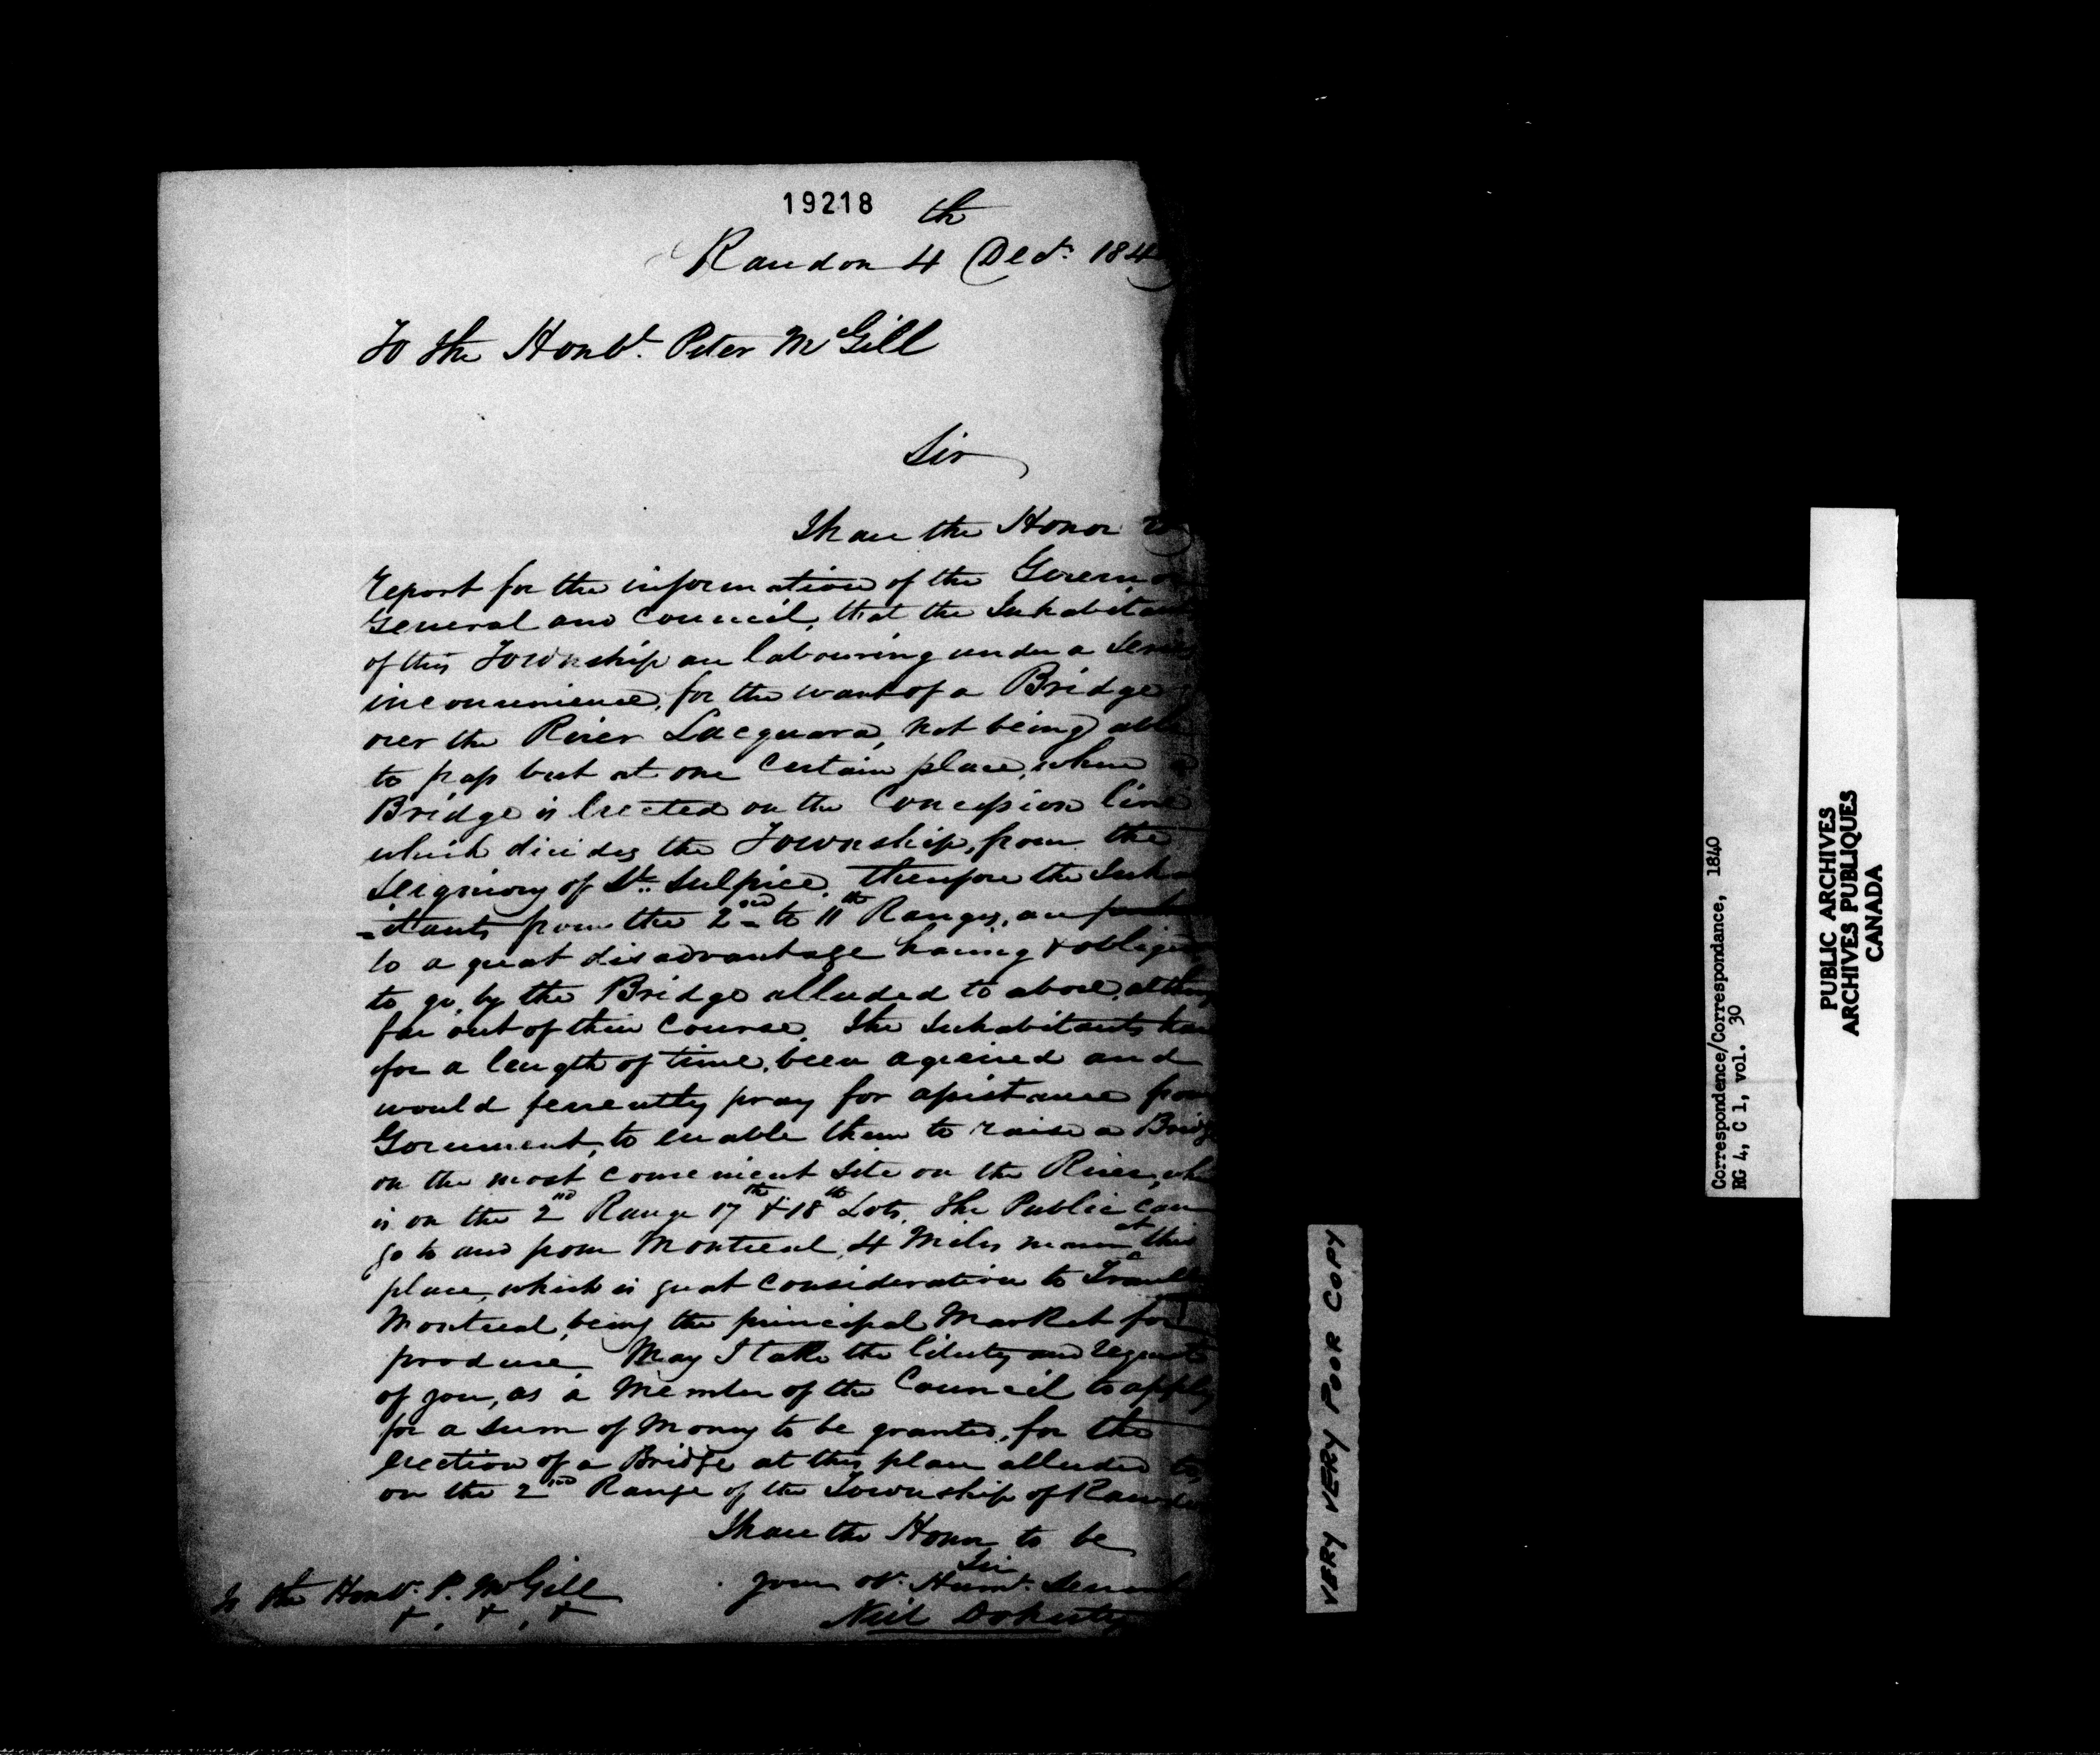 19218
th
Rawdon 4 Decr. 184
To the Honbl. Peter McGill
Sir
I have the Honor to
report for the information of the Governor
General and Council, that the Inhabitants
of this Township are labouring under a
inconvenience, for the want of a Bridge
over the River Lacquara, not being able
to pass but at one certain place, where a
Bridge is erected on the Concession line
which divides the Township, from the
Seigniory of St. Sulpice. Therefore the Inhab
-itants from the 2nd to 11th Ranges, are
to a great disadvantage having & obliged
to go by the Bridge alluded to above,
far out of their course. The Inhabitants have
for a length of time, been agreived and
would fervently pray for assistance from
Goverment, to enable them to raise a Bridge
on the most convenient Site on the River,
is on the 2nd Range 17th & 18th Lots. The Public can
go to and from Montreal, 4 Miles nearer at this
place, which is great consideration to
Montreal, being the principal Market for
produce. May I take the liberty and request
of you, as a Member of the Council to apply
for a sum of Money to be granted, for the
erection of a Bridge at this place alluded to,
on the 2nd Range of the Township of Rawdon
I have the Honor to be
Sir
your ot. Humt. Servant
To the Honbl. P. McGill
&, &, &
Neil Doherty
VERY VERY POOR COPY
Correspondence/Correspondance, 1840
RG 4, C 1, vol. 30
PUBLIC ARCHIVES
ARCHIVES PUBLIQUES
CANADA